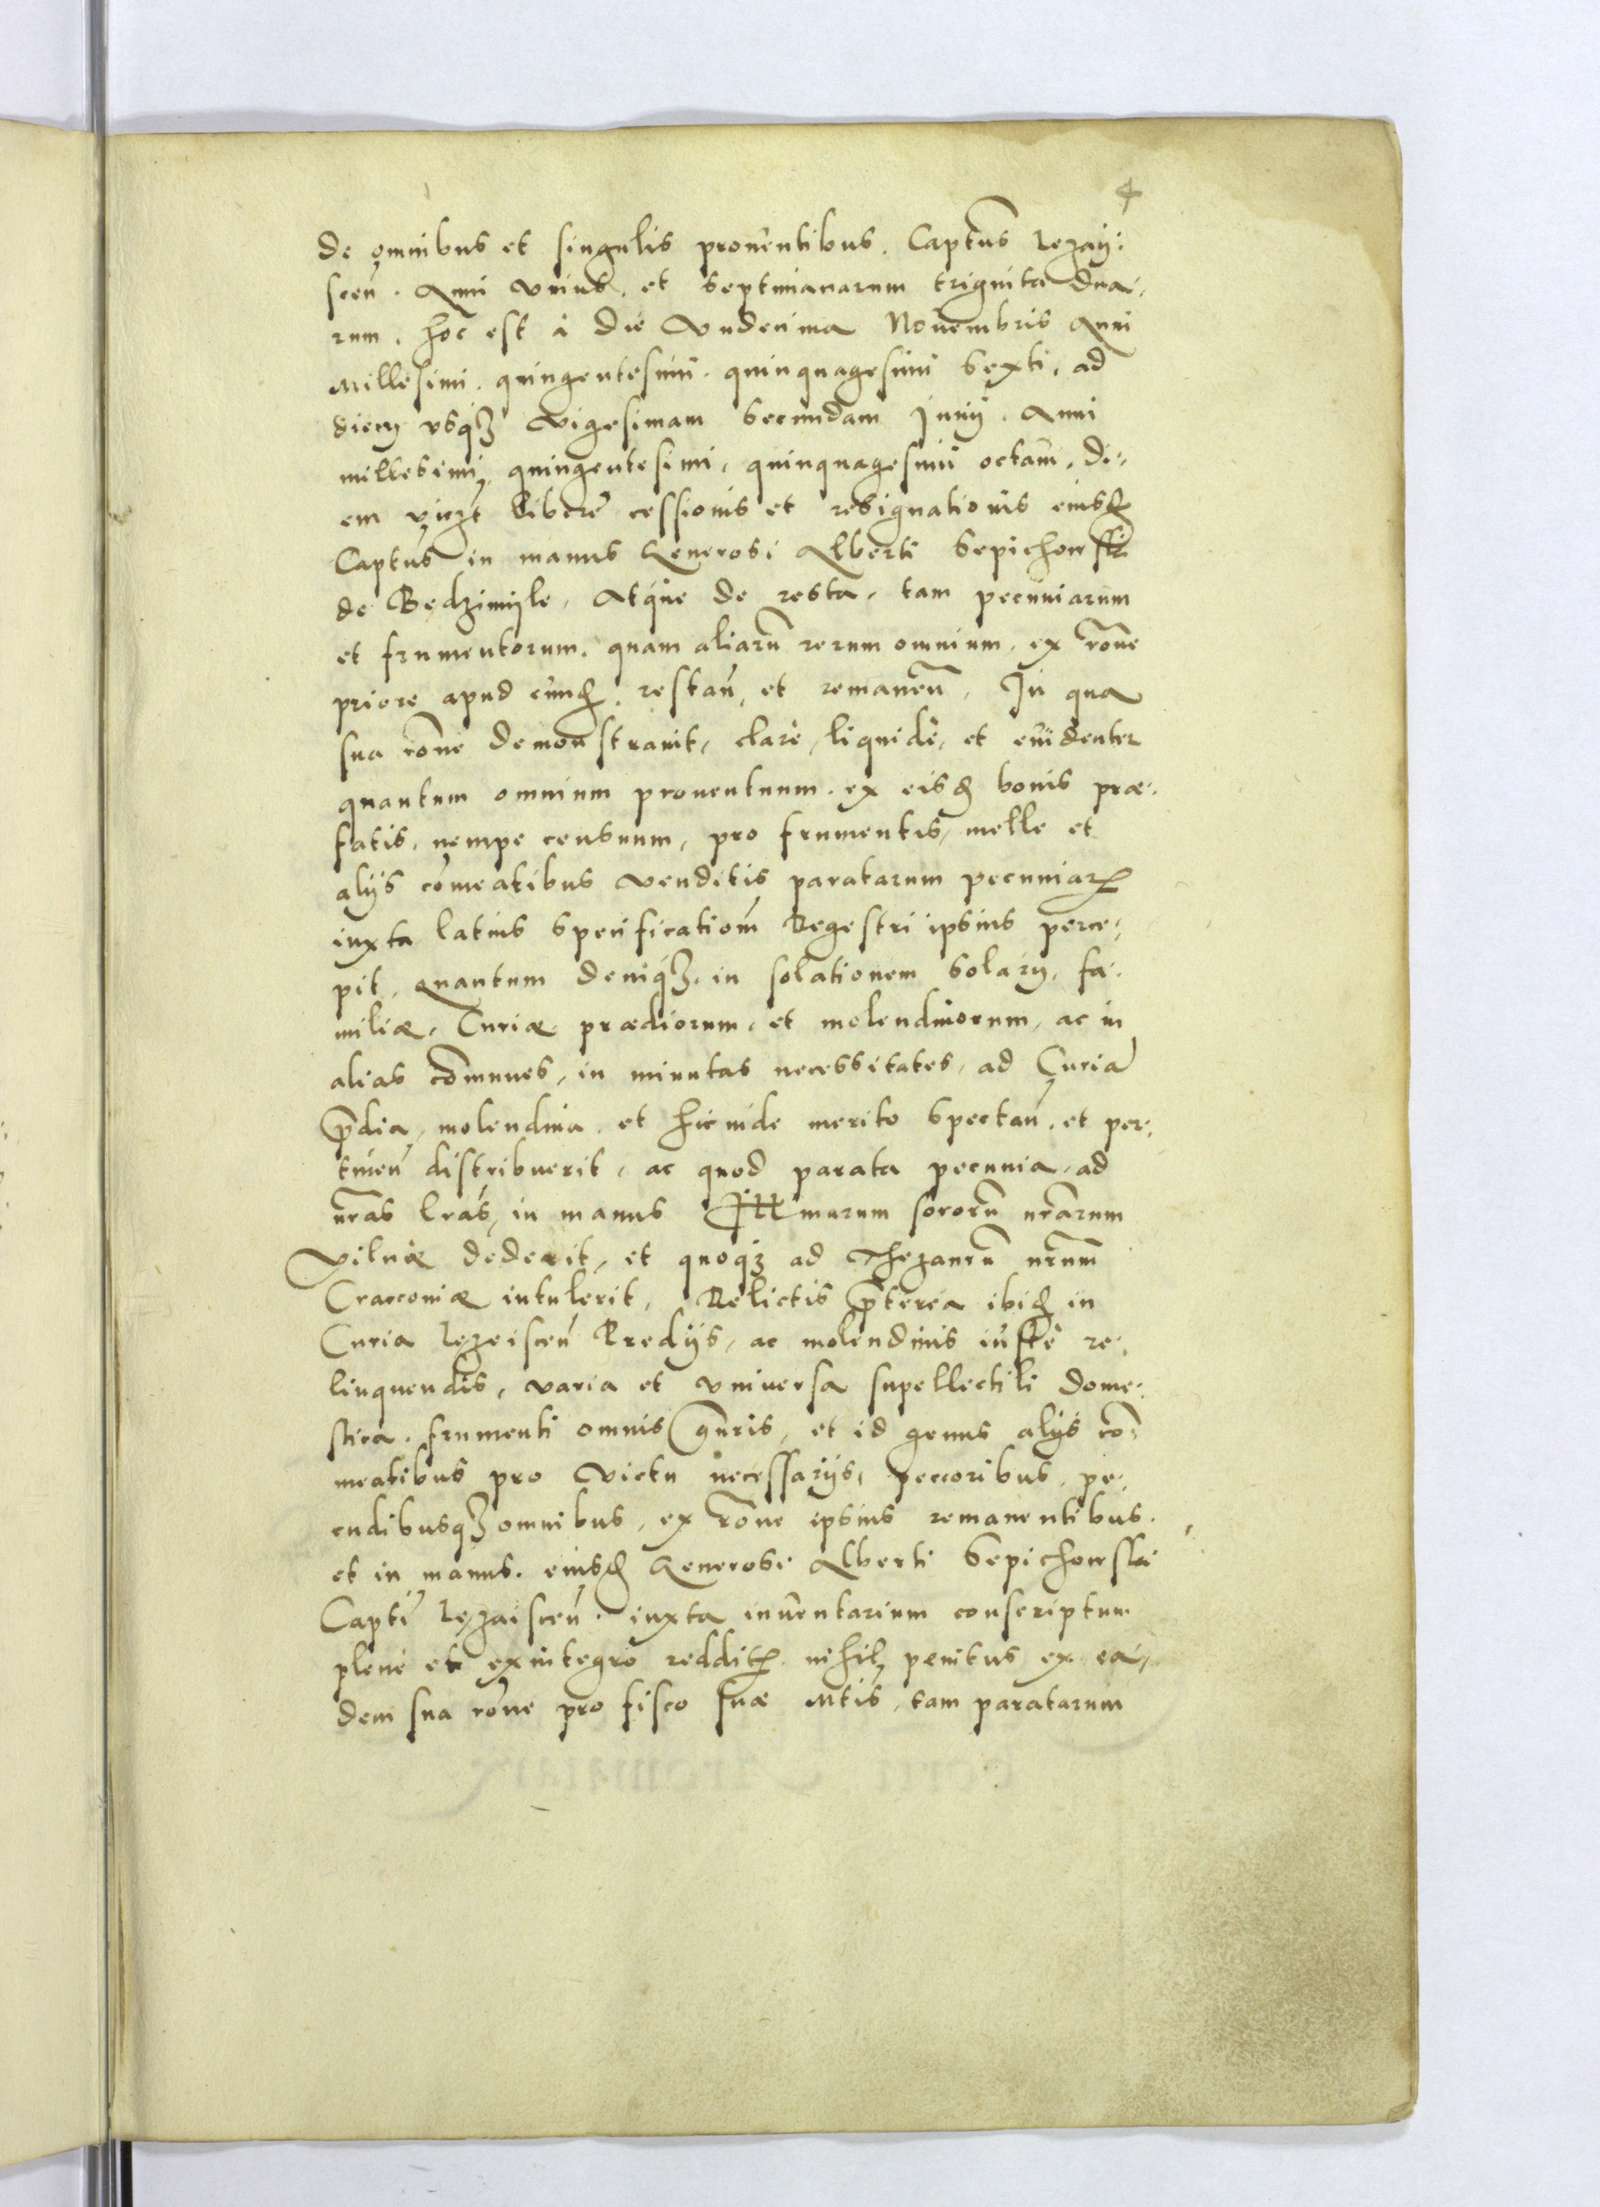 4
de omnibus et singulis prouentibus. Captus Lezay:
scen̄. Anni vnius. et septimanarum triginta dua,
rum. hoc est à die Vndecima Nouembris Anni
Millesimi. quingentesimi. quinquagesimi sexti, ad
diem vsq₃ vigesimam secundam Junij. Anni
millesimi, quingentesimi, quinquagesimi octaui, di,
em vicz̄t libere cessionis et resignationis eiusd̄
Captus in manus Generosi Alberti Sepichowski
de Bedzimijsle, Atque de resta, tam pecuniarum
et frumentorum. quam aliarū rerum omnium, ex rōne
priore apud eund̄. restan̄, et remanen̄. In qua
sua rōne demonstrauit, clarè, liquidè, et euidenter
quantum omnium prouentuum. ex eisd̄ bonis præ,
fatis, nempe censuum, pro frumentis, melle et
alijs cōmeatibus venditis paratarum pecuniarꝝ
iuxta latius specificationē Regestri ipsius perce,
pit, quantum deniq₃. in solationem solarij, fa,
miliæ, Curiæ prædiorum, et molendinorum, ac in
alias cōmunes, in minutas necessitates, ad Curiā
p̄dia, molendina. et hic inde merito spectan̄. et per,
tinen̄ distribuerit, ac quod parata pecunia, ad
nr̄as lr̄as, in manus Illmarum sororū nr̄arum
Vilnæ dederit, et quoq₃ ad Thezaurū nr̄um
Cracouiæ intulerit, Relictis p̄terea ibid̄ in
Curia Lezeiscen̄ Predijs, ac molendinis iustè re,
linquendis, varia et vniuersa supellectili dome,
stica. frumenti omnis gn̄ris, et id genus alijs cō,
meatibus pro victu necessarijs, peccoribus, pe,
cudibusq₃ omnibus, ex rōne ipsius remanentibus.
et in manus. eiusd̄ Generosi Alberti Sepichowski
Capti Lezaiscen̄. iuxta inuentarium conscriptum
plenè et ex integro redditꝭ nihil penitus ex ea,
dem sua rōne pro fisco suæ Mtis, tam paratarum